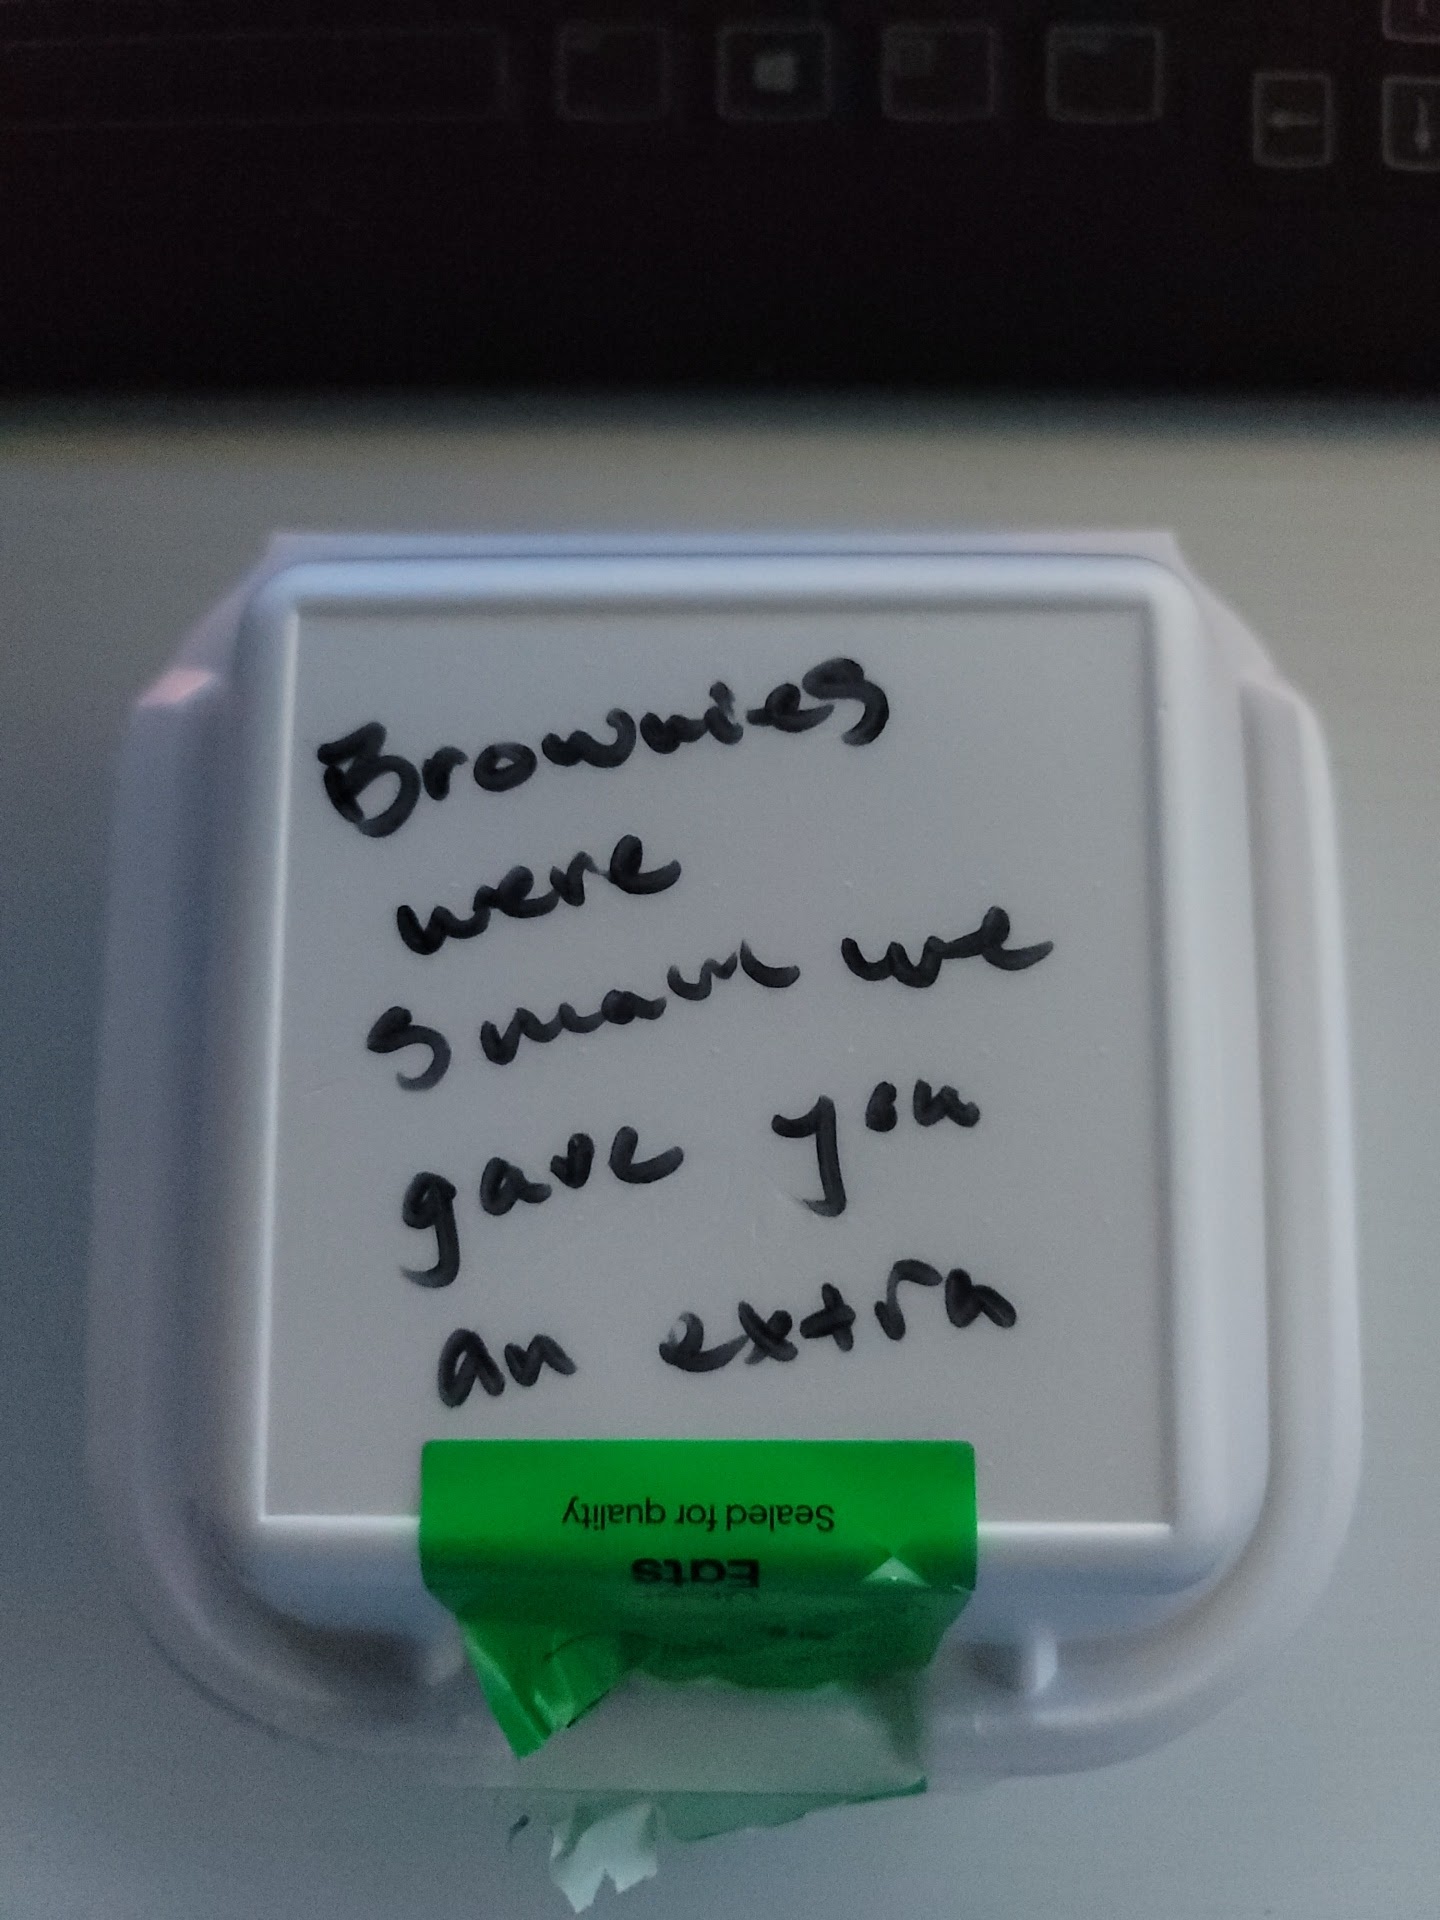 Brownies
were
small we
gave you
an extra
Sealed for quality
Eats